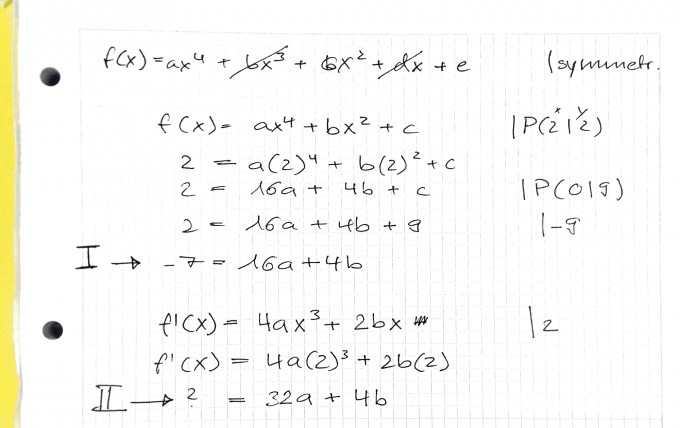 f(x) = ax⁴ + bx³ + bx² + dx + e | symmetr.
f(x) = ax⁴ + bx² + c | P(2|2)
x y
2 = a(2)⁴ + b(2)² + c
2 = 16a + 4b + c | P(0|9)
2 = 16a + 4b + 9 | -9
I → -7 = 16a + 4b
f'(x) = 4ax³ + 2bx | 2
f'(x) = 4a(2)³ + 2b(2)
II → ? = 32a + 4b